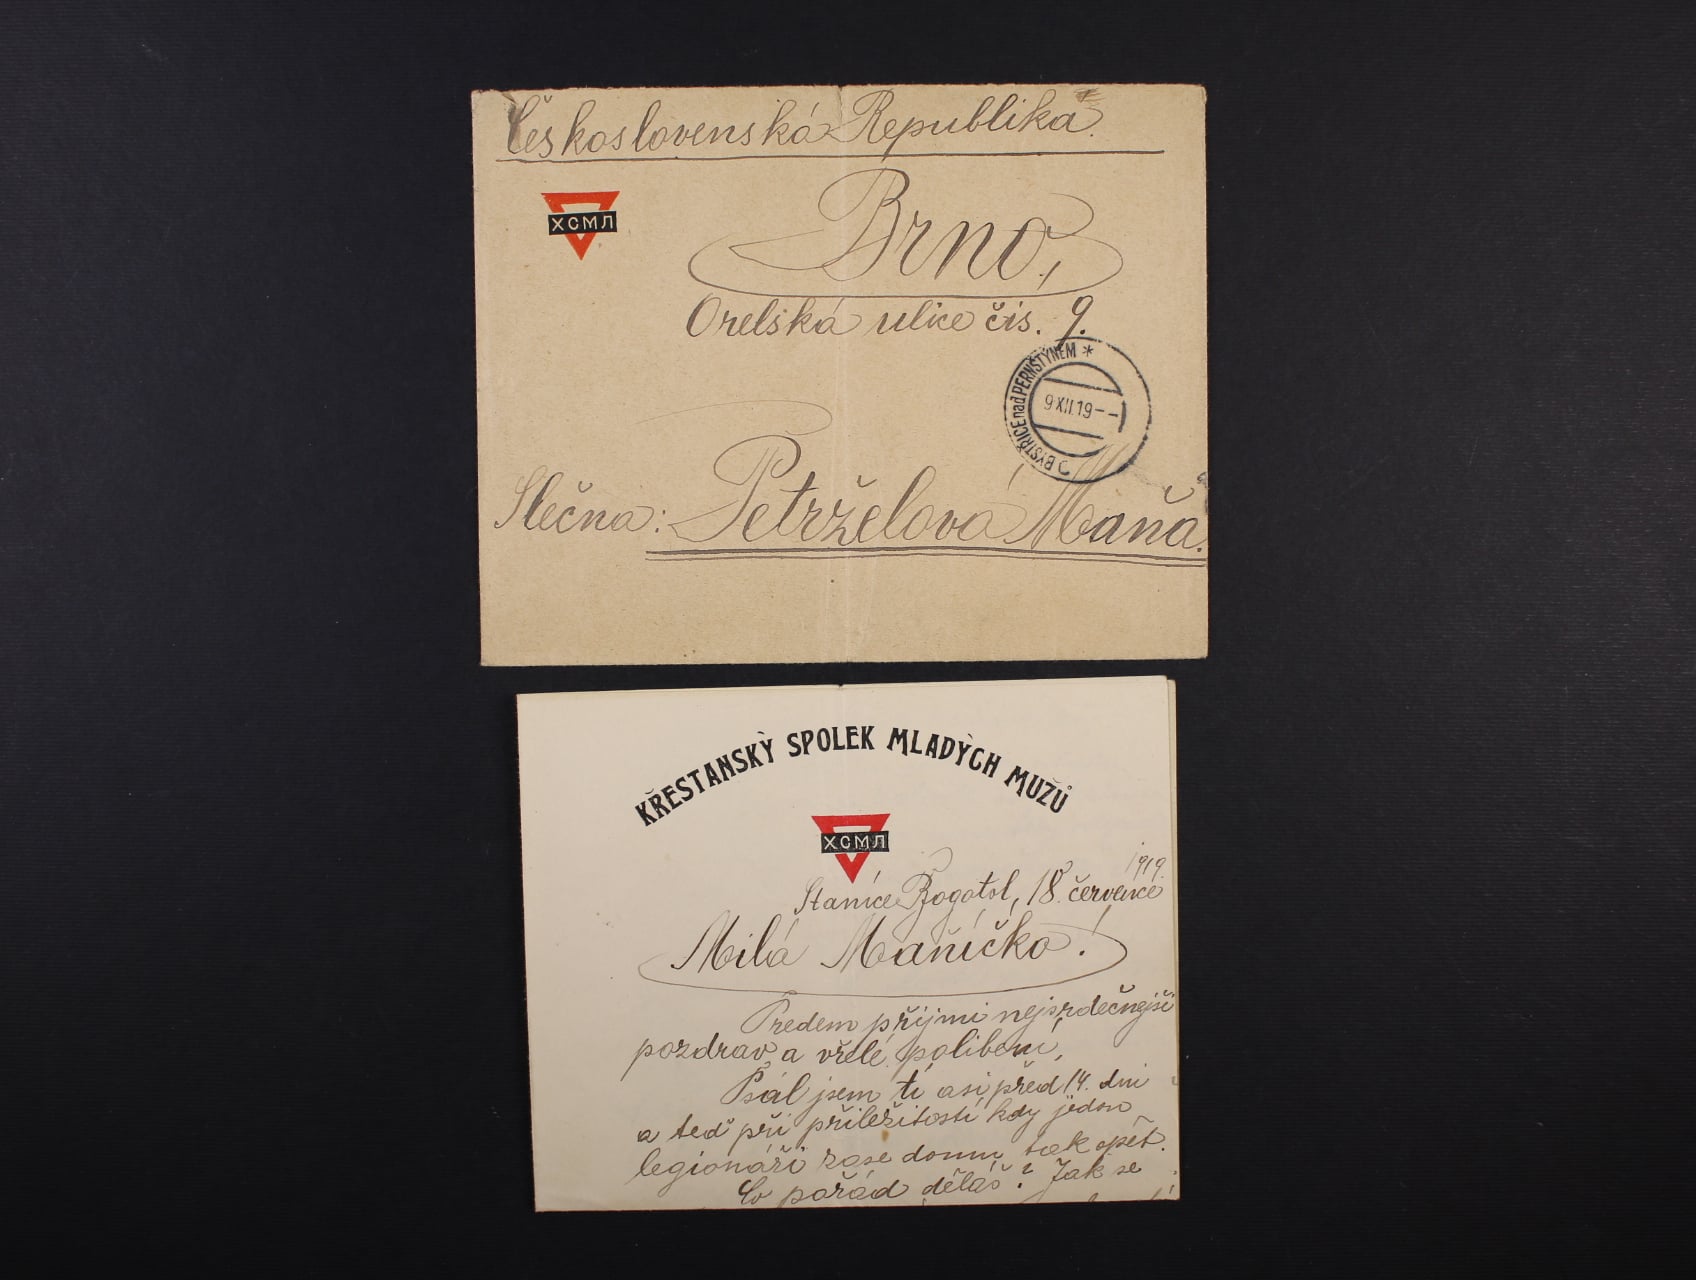 Československá Republika.
ХСМЛ
Brno,
Orelská ulice čís. 9.
BYSTŘICE nad PERNŠTÝNEM *
9 XII.19--
Slečna: Petrželová Maňa.
KŘESTANSKÝ SPOLEK MLADÝCH MUŽŮ
ХСМЛ
1919.
Stanice Bogotol, 18. července
Milá Maničko!
Předem přijmi nejsrdečnejší
pozdrav a vřelé políbení,
Psal jsem ti asi před 14. dni
a teď při příležitosti kdy jedou
legionáři zase domu tak opět.
Co pořád děláš? Jak se